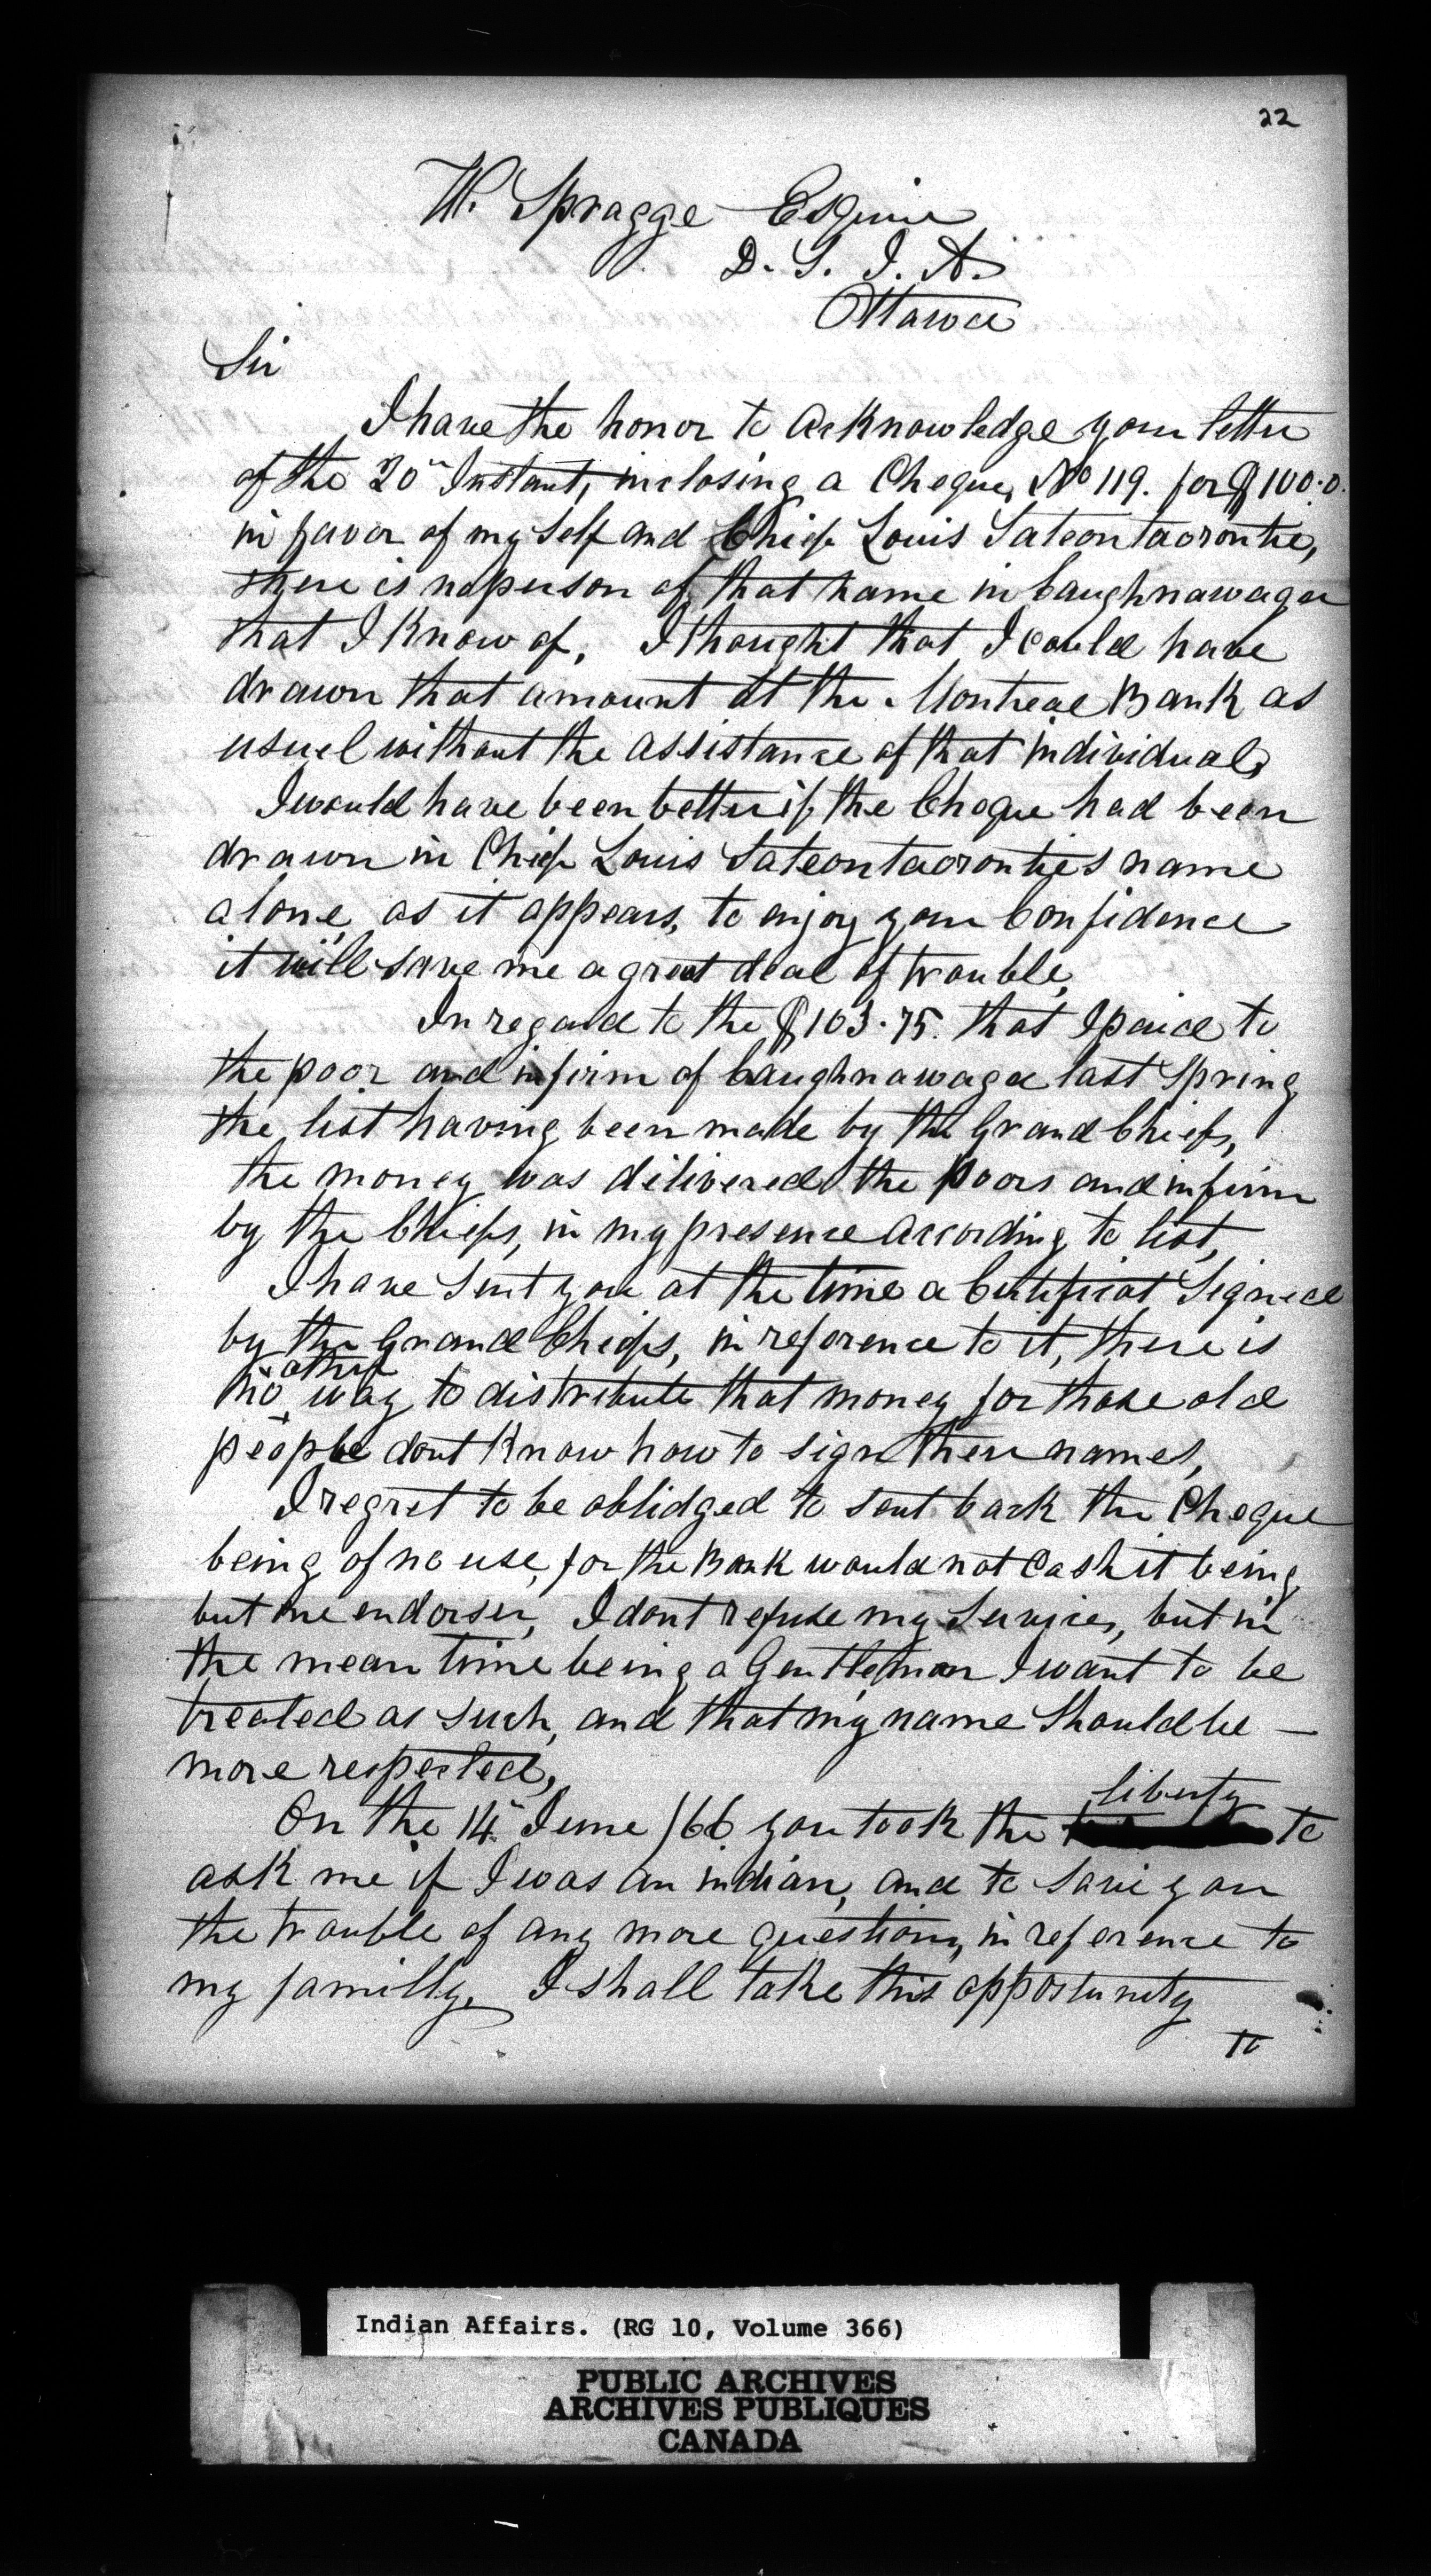 22
W. Spragge Esquire
D. S. I. A.
Ottawa
Sir
I have the honor to acknowledge your letter
of the 30th Instant, inclosing a Cheque, No 119. for $100.0.
in favor of my self and Chief Louis Sateontaorontie,
there is no person of that name in Caughnawaga
that I Know of, I thought that I could have
drawn that amount at the Montreal Bank as
usuel without the assistance of that individual,
I would have been better if the Cheque had been
drawn in Chief Louis Sateontaoronties name
alone, as it appears, to enjoy your Confidence
it will save me a great deal of trouble,
In regard to the $103.75. that I paid to
the poor and infirm of Caughnawaga last Spring
the list having been made by the Grand Chiefs,
the money was dilivered the poors and infirm
by the Chiefs, in my presence According to list,
I have Sent you at the time a Certificat Signed
by the Grand Chiefs, in reference to it, there is
no other way to distribute that money for those old
people dont Know how to sign their names,
I regret to be oblidged to sent back the Cheque
being of no use, for the Bank would not Cash it being
but one endorser, I dont refuse my Services, but in
the mean time being a Gentleman I want to be
treated as such, and that my name Should be —
more respected,
On the 14th June /66 you took the liberty to
ask me if I was an indian, and to save you
the trouble of any more questions, in reference to
my familly, I shall take this opportunity
to
Indian Affairs. (RG 10, Volume 366)
PUBLIC ARCHIVES
ARCHIVES PUBLIQUES
CANADA